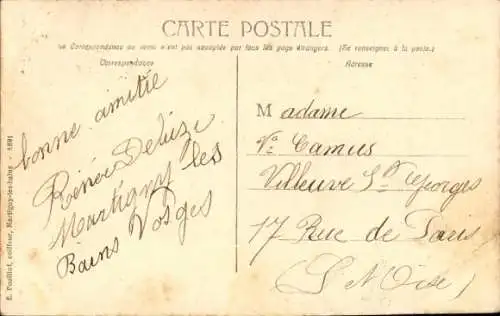 CARTE POSTALE
La Correspondance au verso n'est pas acceptée par tous les pays étrangers. (Se renseigner à la poste.)
Correspondance
Adresse
bonne amitié
Renée
Martigny les
Bains Vosges
Madame
Vve Camus
Villeuve St Georges
17 Rue de Paris
(S N Oise)
E. Pouillot, coiffeur, Martigny-les-bains - 4891